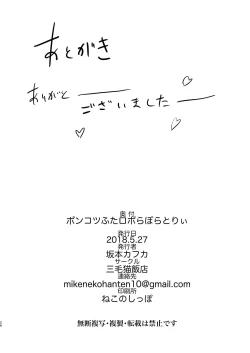 あとがき
ありがと
ございました
奥付
ポンコツふたロボらぼらとりぃ
発行日
2018.5.27
発行者
坂本カフカ
サークル
三毛猫飯店
連絡先
mikenekohanten10@gmail.com
印刷所
ねこのしっぽ
無断複写・複製・転載は禁止です